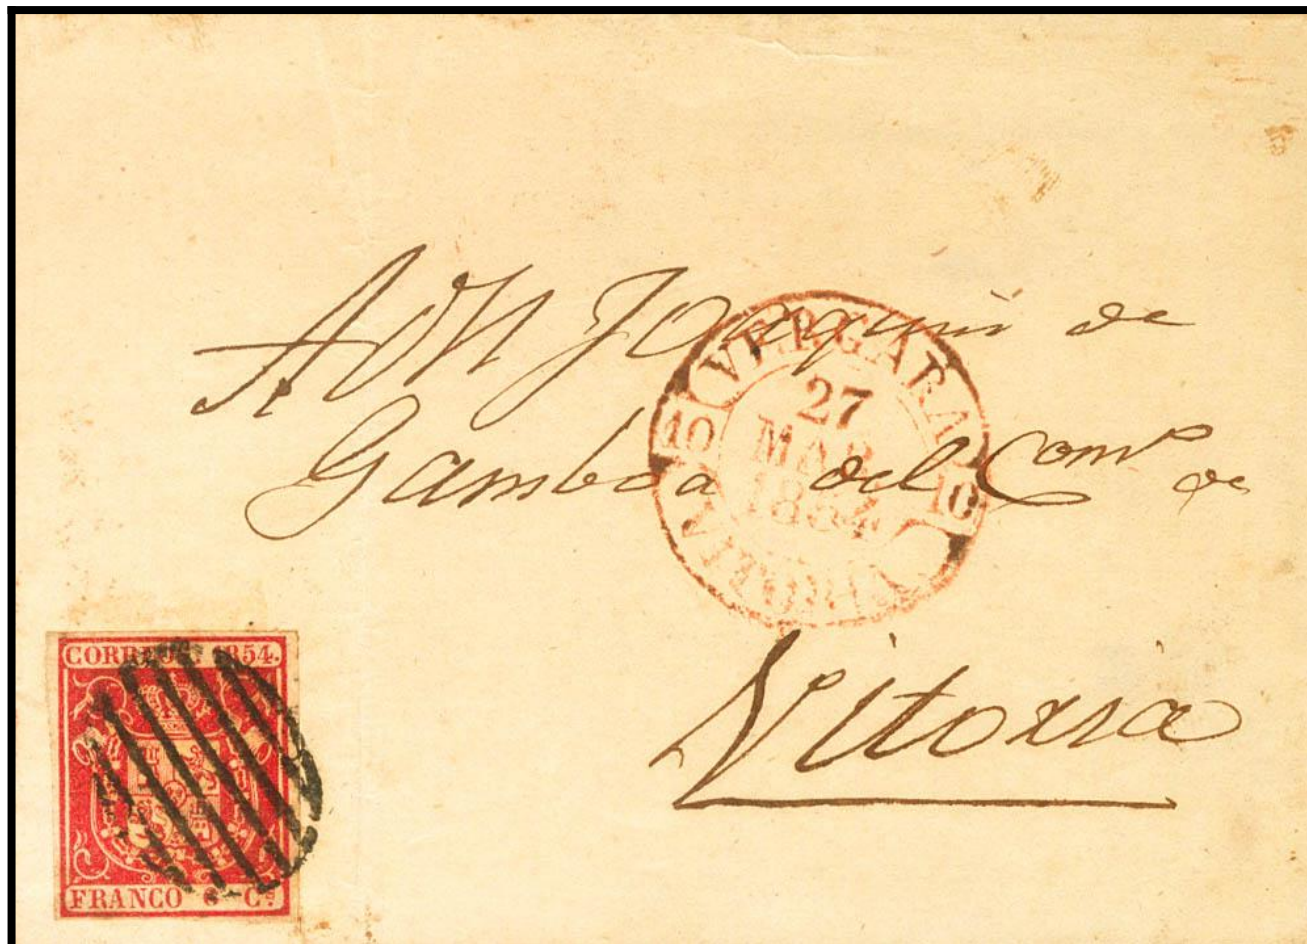 A Dn Joaquin de
Gamboa del Com.o de
Vitoria
VERGARA
27
MAR
1854
10 10
VITORIA
CORREOS 1854.
FRANCO 6 Cs